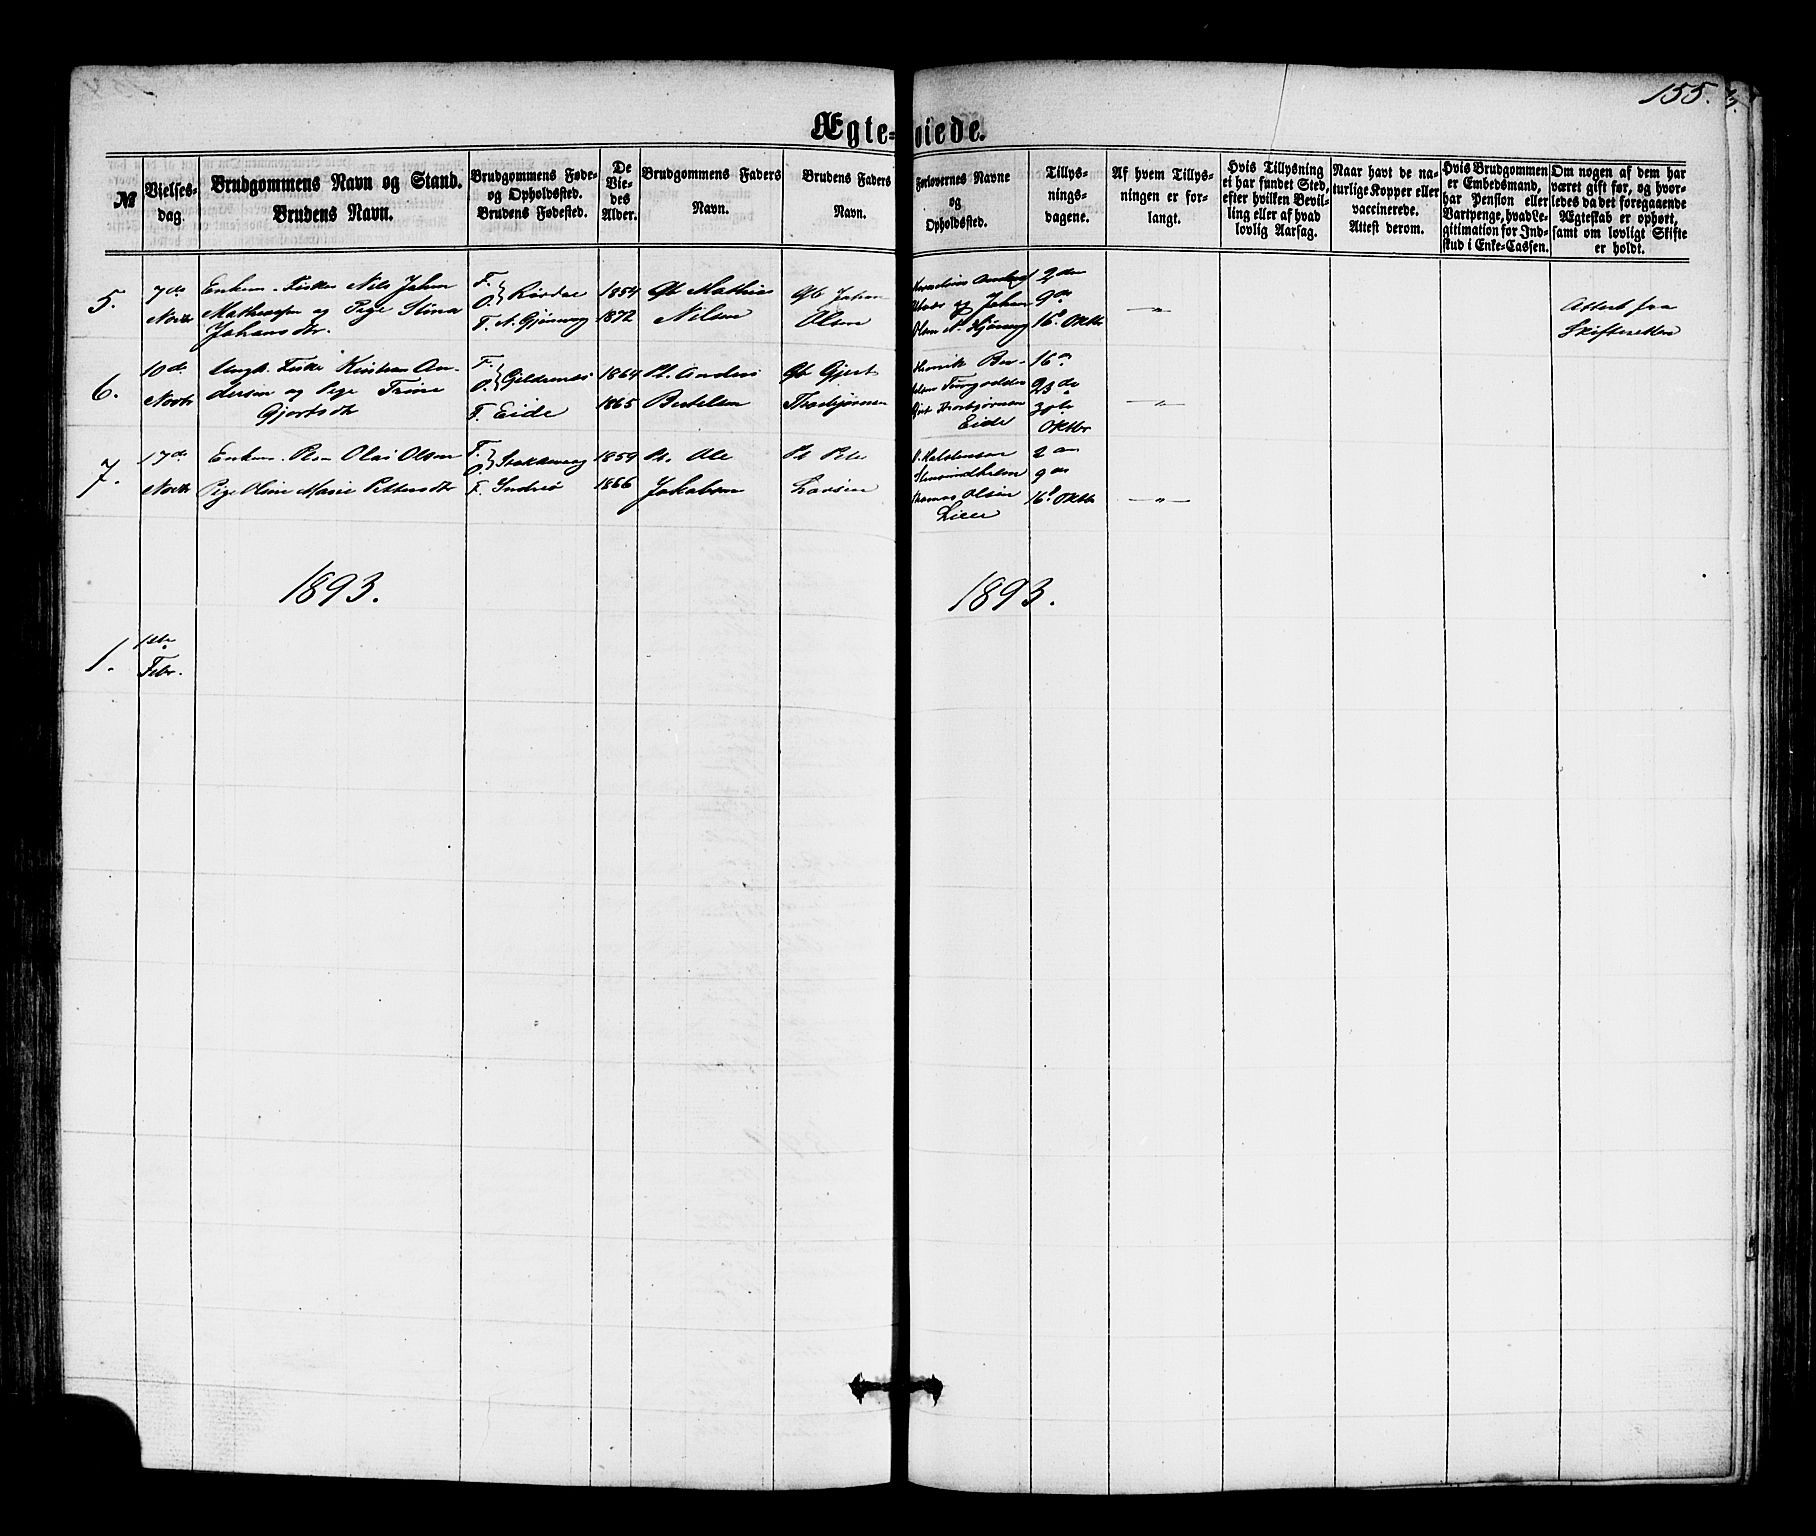 155.
Ægte-viede.
№
Vielses-
dag.
Brudgommens Navn og Stand.
Brudens Navn.
Brudgommens Føde-
og Opholdssted.
Brudens Fødested.
De
Vie-
des
Alder.
Brudgommens Faders
Navn.
Brudens Faders
Navn.
Forlovernes Navne
og
Opholdssted.
Tillys-
nings-
dagene.
Af hvem Tillys-
ningen er for-
langt.
Hvis Tillysning
ei har fundet Sted,
efter hvilken Bevil-
ling eller af hvad
lovlig Aarsag.
Naar havt de na-
turlige Kopper eller
vaccinerede.
Attest derom.
Hvis Brudgommen
er Embedsmand,
har Pension eller
Vartpenge, hvad Le-
gitimation for Ind-
skud i Enke-Cassen.
Om nogen af dem har
været gift før, og hvor-
ledes da det foregaaende
Ægteskab er ophørt,
samt om lovligt Skifte
er holdt.
5.
7de
Novbr
Enkem. Fisker Nils Johan
Mathiassen og Pige Stina
Johansdtr.
F.
O.
F. N. Gjøsvær
1854
1872
Gb Mathias
Nilsen
Gb Johan
Olsen
og Johan
Olsen
2den
9de
16de Oktbr
"
Attest fra
Skifteretten
6.
10de
Novbr
Ungk. Fisker Kristian An-
dersen og Pige Trine
Gjertsdtr
F.
O. Gjeldsnæs
F. Eide
1864
1865
Pl. Anders
Bertelsen
Gb Gjert
Thorbjørnsen
Henrik
Thorbjørnsen
Eide
16de
23de
30te
Oktbr
"
7.
17de
Novbr
Enkem. Olai Olsen
Pige Oline Marie Pettersdtr
F.
O. Stokkevaag
F. Inderø
1859
1866
Ole
Jakobsen
Peter
Larsen
Thomas Olsen
Lien
2den
9de
16de Oktbr
"
1893.
1893.
1.
1ste
Febr.